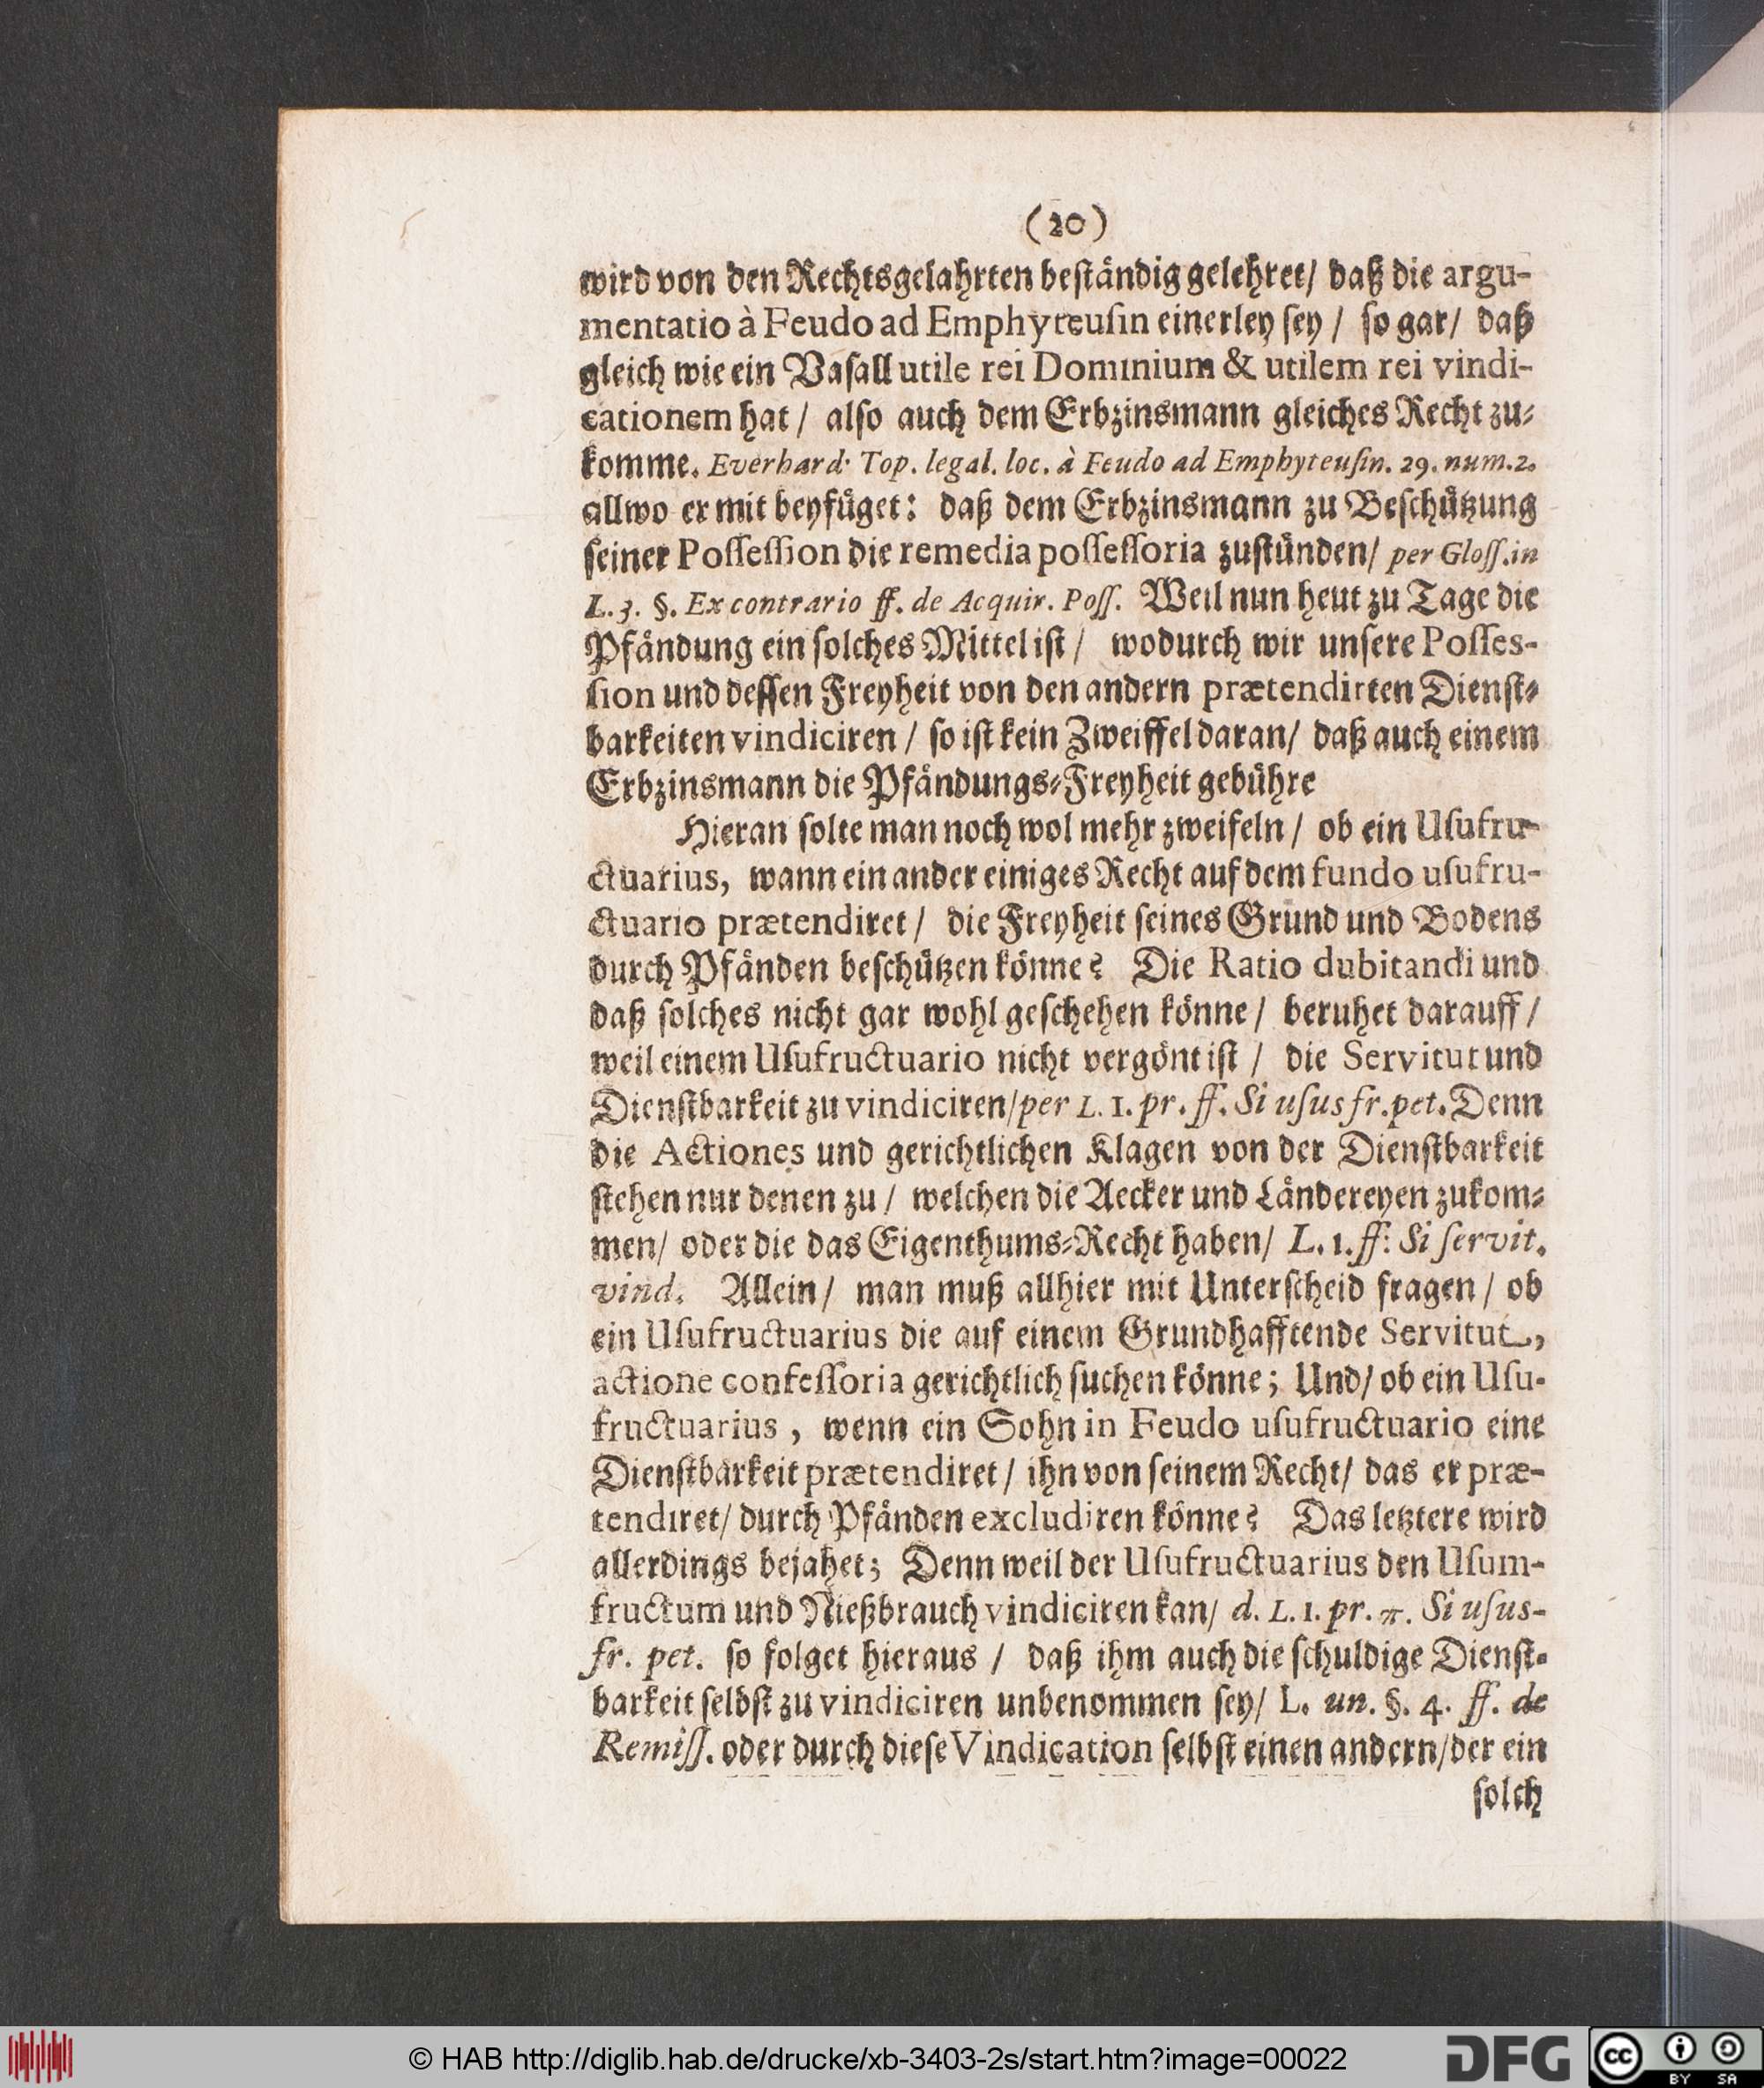 (20)
wird von den Rechtsgelahrten beständig gelehret/ daß die argu-
mentatio à Feudo ad Emphyteuſin einerley ſey / ſo gar/ daß
gleich wie ein Vaſall utile rei Dominium & utilem rei vindi-
cationem hat / alſo auch dem Erbzinsmann gleiches Recht zu-
komme. Everhard. Top. legal. loc. à Feudo ad Emphyteuſin. 29. num. 2.
allwo er mit beyfüget: daß dem Erbzinsmann zu Beſchützung
ſeiner Poſſeſſion die remedia poſſeſſoria zuſtünden/ per Gloſſ. in
L. 3. §. Ex contrario ff. de Acquir. Poſſ. Weil nun heut zu Tage die
Pfändung ein ſolches Mittel iſt / wodurch wir unſere Poſſes-
ſion und deſſen Freyheit von den andern prætendirten Dienſt-
barkeiten vindiciren / ſo iſt kein Zweiffel daran/ daß auch einem
Erbzinsmann die Pfändungs-Freyheit gebühre
Hieran ſolte man noch wol mehr zweifeln / ob ein Uſufru-
ctuarius, wann ein ander einiges Recht auf dem fundo uſufru-
ctuario prætendiret / die Freyheit ſeines Grund und Bodens
durch Pfänden beſchützen könne? Die Ratio dubitandi und
daß ſolches nicht gar wohl geſchehen könne / beruhet darauff /
weil einem Uſufructuario nicht vergönt iſt / die Servitut und
Dienſtbarkeit zu vindiciren/ per L. 1. pr. ff. Si uſus fr. pet. Denn
die Actiones und gerichtlichen Klagen von der Dienſtbarkeit
ſtehen nur denen zu / welchen die Aecker und Ländereyen zukom-
men/ oder die das Eigenthums-Recht haben/ L. 1. ff. Si ſervit.
vind. Allein / man muß allhier mit Unterſcheid fragen / ob
ein Uſufructuarius die auf einem Grund hafftende Servitut,
actione confeſſoria gerichtlich ſuchen könne; Und/ ob ein Uſu-
fructuarius, wenn ein Sohn in Feudo uſufructuario eine
Dienſtbarkeit prætendiret / ihn von ſeinem Recht/ das er præ-
tendiret/ durch Pfänden excludiren könne? Das letztere wird
allerdings bejahet; Denn weil der Uſufructuarius den Uſum-
fructum und Nießbrauch vindiciren kan/ d. L. 1. pr. π. Si uſus-
fr. pet. ſo folget hieraus / daß ihm auch die ſchuldige Dienſt-
barkeit ſelbſt zu vindiciren unbenommen ſey/ L. un. §. 4. ff. de
Remiſſ. oder durch dieſe Vindication ſelbſt einen andern/ der ein
ſolch
© HAB http://diglib.hab.de/drucke/xb-3403-2s/start.htm?image=00022
DFG
cc BY SA